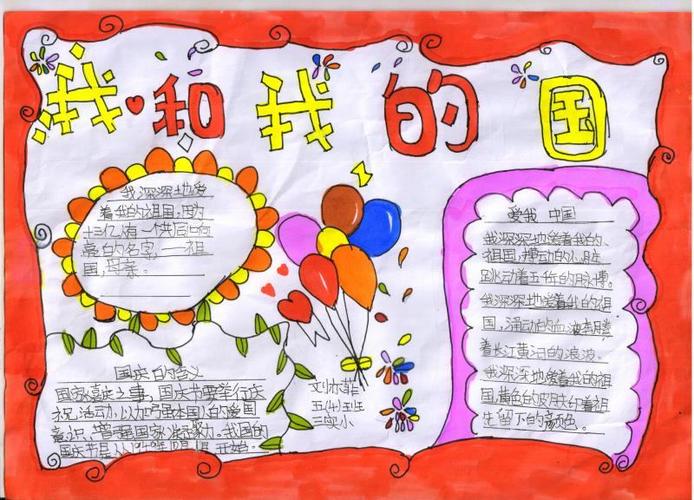 我和我的国
我深深地爱
着我的祖国,因为
十三亿人有一个共同的响
亮的名字,——祖
国,母亲。
国庆的含义
国家喜庆之事,国庆节要举行庆
祝活动,以加强本国人的爱国
意识,增强国家凝聚力。我国的
国庆节是从1949年10月1日开始。
刘亦菲
五(4)班
三实小
爱我中国
我深深地爱着我的、
祖国,搏动的心脏
跳动着五千年的脉搏。
我深深地爱着我的祖
国,涌动的血液奔腾
着长江黄河的浪波。
我深深地爱着我的祖
国,黄色的皮肤印着祖
先留下的颜色。